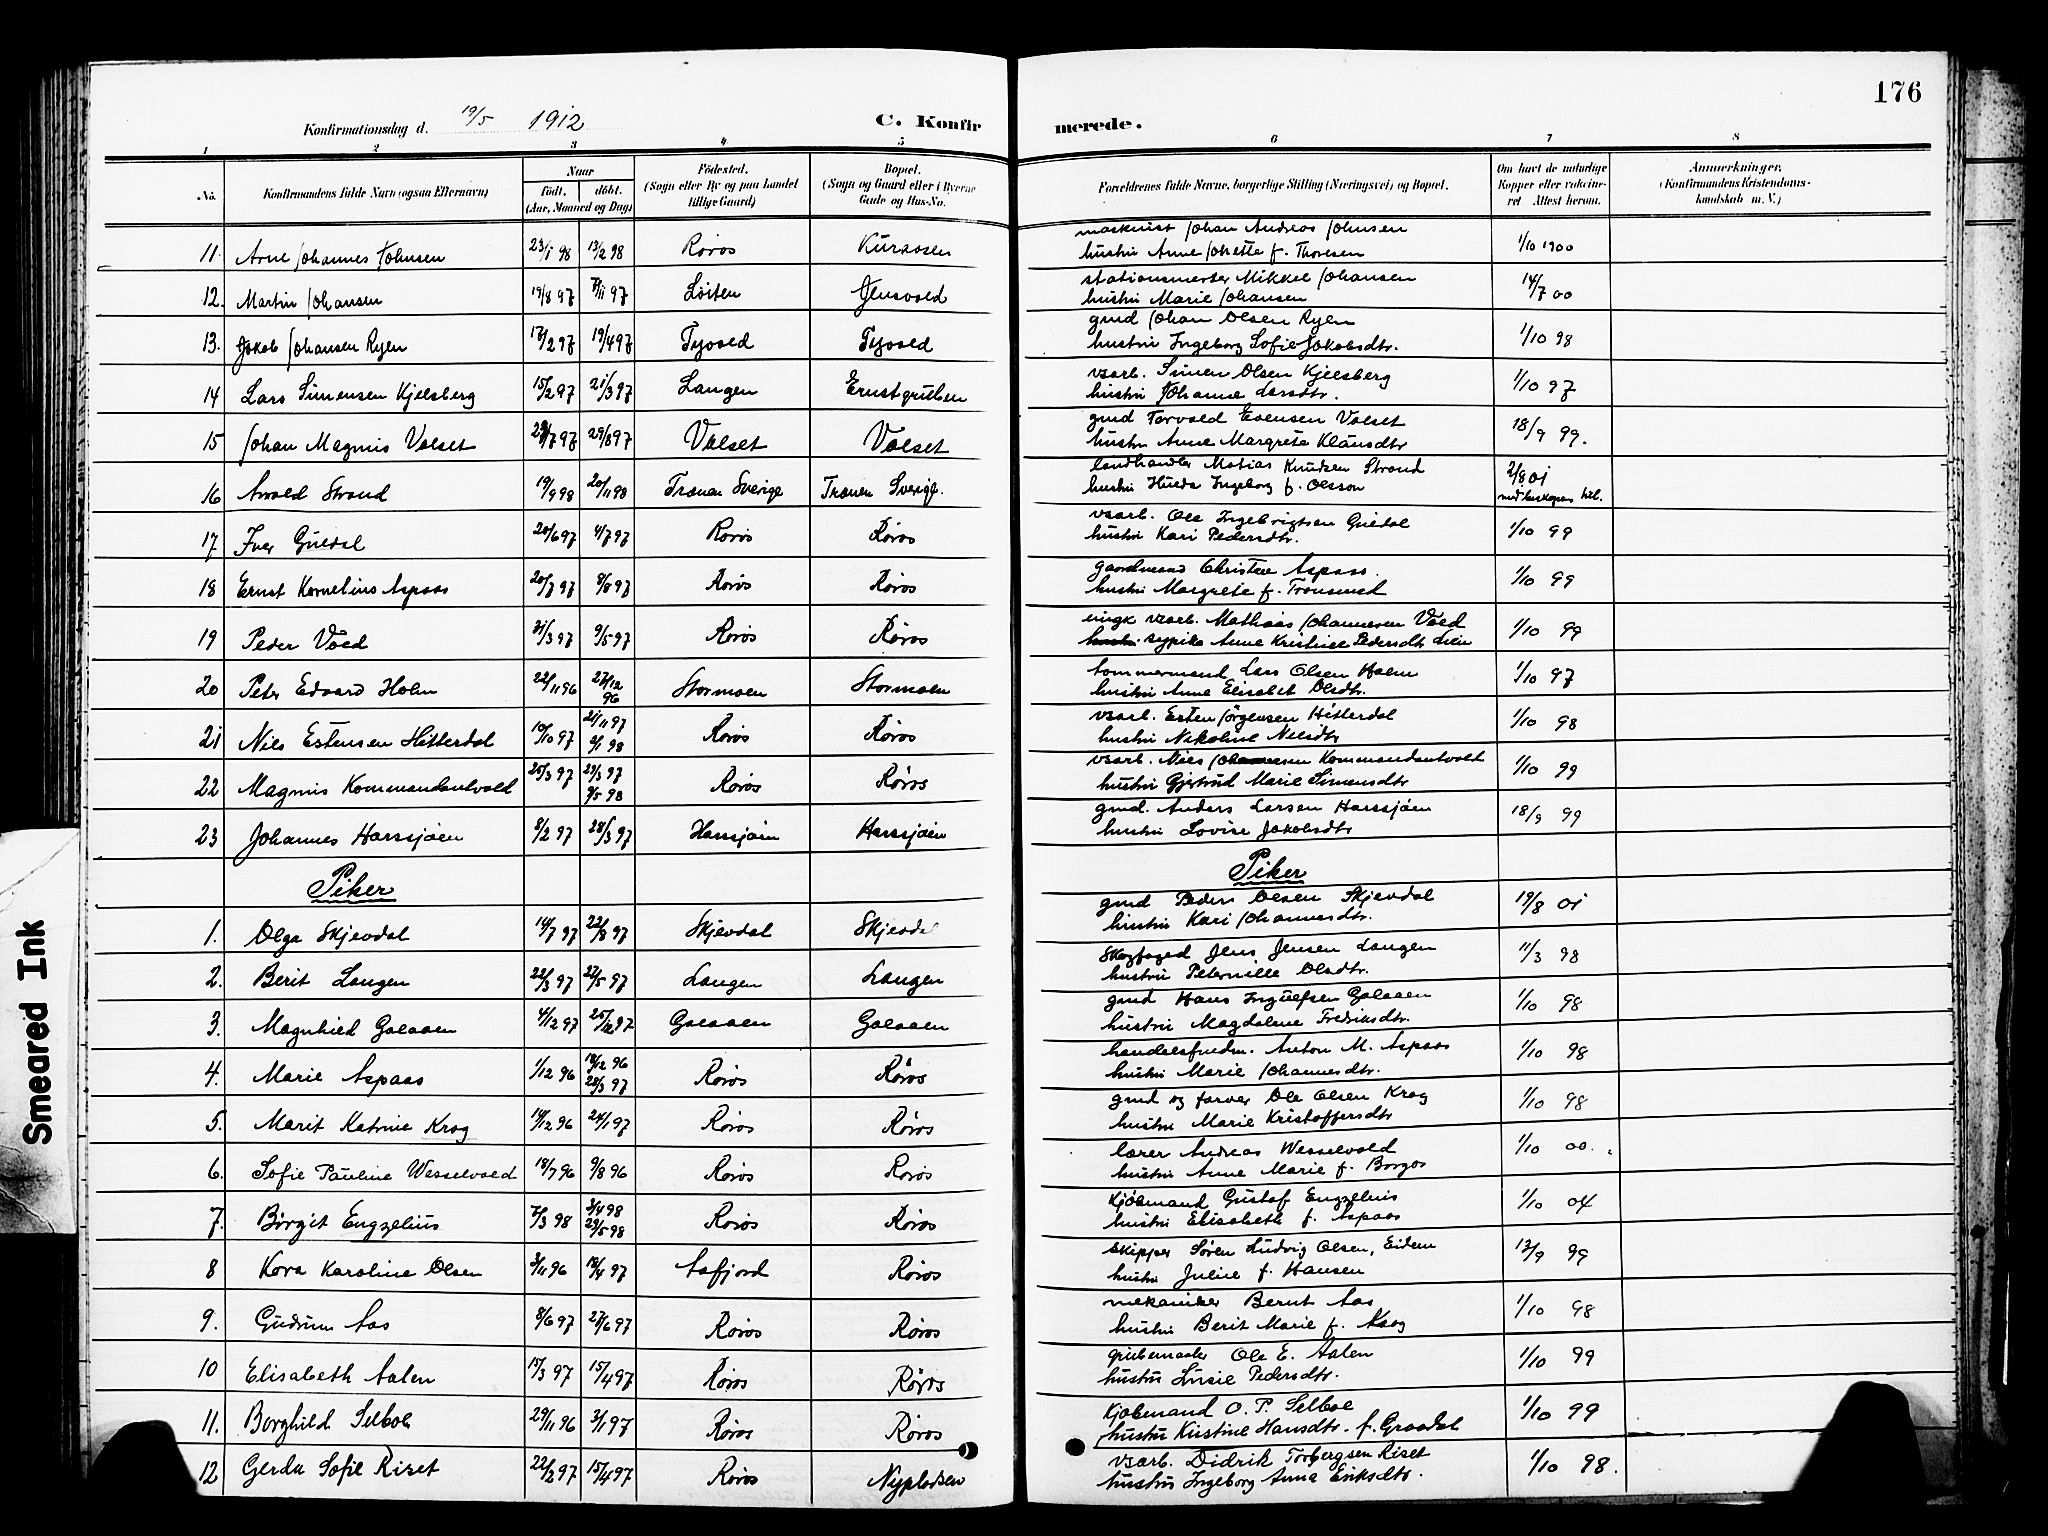 176
Konfirmationsdag d. 19/5 1912 C. Konfirmerede.
1 2 3 4 5 6 7 8
No. Konfirmandens fulde Navn (ogsaa Efternavn) Naar født, døbt. (Aar, Maaned og Dag) Fødested. (Sogn eller By og paa Landet tillige Gaard) Bopæl. (Sogn og Gaard eller i Byerne Gade og Hus-No. Forældrenes fulde Navne, borgerlige Stilling (Næringsvei) og Bopæl. Om havt de naturlige Kopper eller vakcineret Attest herom. Anmærkninger. (Konfirmandens Kristendomskundskab m. V.)
11. Arne Johannes Johnsen 23/1 98 13/2 98 Røros Kuraasen maskinist Johan Andreas Johnsen 1/10 1900
hustru Anne Johette f. Thoresen
12. Martin Johansen 19/8 97 /11 97 Løiten Jensvold stationsmester Mikkel Johansen 14/7 00
hustru Marie Johansen
13. Jakob Johansen Ryen 17/2 97 19/4 97 Tyvold Tyvold gmd Johan Olsen Ryen 1/10 98
hustru Ingeborg Sofie Jakobsdtr.
14 Lars Simensen Kjelsberg 15/2 97 21/3 97 Langen Ernstgruben vsarb. Simen Olsen Kjelsberg 1/10 97
hustru Johanne Larsdtr.
15 Johan Magnus Valset /7 97 29/8 97 Valset Valset gmd Torvald Evensen Valset 18/9 99.
hustru Anne Margrete Klausdtr
16 Arvold Strand 19/9 98 20/11 98 Tranen Sverige Tranen Sverige. landhandler Matias Knudsen Strand 2/8 01
hustru Hulda Ingeborg f. Olsson
17 Iver Guldal 20/6 97 4/7 97 Røros Røros vsarb. Ole Ingebrigtsen Guldal 1/10 99
hustru Kari Pedersdtr.
18 Ernst Kornelius Aspaas 20/7 97 8/8 97 Røros Røros gaardmand Christen Aspaas. 1/10 99
hustru Margrete f. Tronsmed
19 Peder Vold 31/3 97 9/5 97 Røros Røros ungk vsarb. Mathias Johannesen Vold 1/10 99
sypike Anne Kristine Pedersdtr Lien
20 Peter Edvard Holm 22/11 96 27/12 96 Stormoen Stormoen tømmermand Lars Olsen Holm 1/10 97
hustru Anne Elisabet Olsdtr.
21 Nils Estensen Hitterdal 10/10 97 21/11 97 2/1 98 Røros Røros vsarb. Esten Jørgensen Hitterdal 1/10 98
hustru Nekoline Nilsdtr
22 Magnus Kommandantvold 25/3 97 29/3 97 8/5 98 Røros Røros vsarb. Nils Johannesen Kommandantvold 1/10 99
hustru Gjertrud Marie Simensdtr
23 Johannes Harssjøen 8/2 97 28/3 97 Harssjøen Harssjøen gmd. Anders Larsen Harssjøen 18/9 99
hustru Lovise Jakobsdtr
Piker Piker
1. Olga Skjevdal 14/7 97 22/8 97 Skjevdal Skjevdal gmd Peder Olsen Skjevdal 19/8 01
hustru Kari Johannesdtr.
2. Berit Langen 22/3 97 27/5 97 Langen Langen Skogfoged Jens Jensen Langen 11/3 98
hustru Peternille Olsdtr.
3. Magnhild Galaaen 4/12 97 25/12 97 Galaaen Galaaen gmd Hans Ingulfsen Galaaen 1/10 98
hustru Magdalene Fredriksdtr.
4. Marie Aspaas 1/12 96 18/12 96 28/3 97 Røros Røros handelsfuldm. Anton M. Aspaas 1/10 98
hustru Marie Johannesdtr.
5. Marit Katrine Krog 14/12 96 24/1 97 Røros Røros gmd og farver Ole Olsen Krog 1/10 98
hustru Marie Kristoffersdtr
6. Sofie Pauline Wesselvold 18/7 96 9/8 96 Røros Røros lærer Andreas Wesselvold 1/10 00.
hustru Anne Marie f. Borgos
7. Birgit Engzelius 7/3 98 3/4 98 29/5 98 Røros Røros Kjøbmand Gustaf Engzelius 1/10 04
hustru Elisabeth f. Aspaas
8 Kora Karoline Olsen 3/11 96 18/4 97 Aafjord Røros skipper Søren Ludvig Olsen, Eidem 13/9 99
hustru Julie f. Hansen
9. Gudrun Aas 8/6 97 27/6 97 Røros Røros mekaniker Bernt Aas 1/10 98
hustru Berit Marie f. Krog
10 Elisabeth Aalen 15/3 97 15/4 97 Røros Røros Ole E. Aalen 1/10 99
hustru Lusie Pedersdtr.
11. Borghild Selboe 29/11 96 3/1 97 Røros Røros Kjøbmand O. P. Selboe 1/10 99
hustru Kristine Hansdtr. f. Graadal
12 Gerda Sofie Riset 22/2 97 15/4 97 Røros Nypladsen vsarb. Didrik Torbergsen Riset 1/10 98.
hustru Ingeborg Anna Eriksdtr.
Smeared Ink